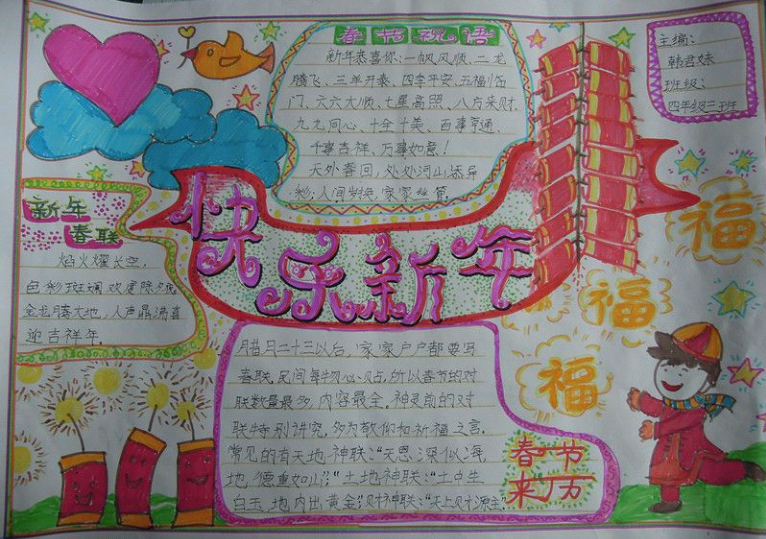 春节祝语
新年恭喜你：一帆风顺、二龙
腾飞、三羊开泰、四季平安、五福临
门、六六大顺、七星高照、八方来财、
九九同心、十全十美、百事亨通、
千事吉祥、万事如意！
天外春回，处处河山添异
彩；人间岁换，家家丝管
主编：
韩君妹
班级：
四年级三班
新年
春联
焰火耀长空，
色彩斑斓欢度除夕夜
金龙腾大地，人声鼎沸喜
迎吉祥年。
快乐新年
福
福
福
腊月二十三以后，家家户户都要写
春联，民间每物必贴，所以春节的对
联数量最多，内容最全。神灵前的对
联特别讲究，多为敬仰和祈福之言。
常见的有天地神联：“天恩深似海，
地德重如山；”土地神联：“土中生
白玉，地内出黄金”；财神联：“天上财源主”
春节
来历